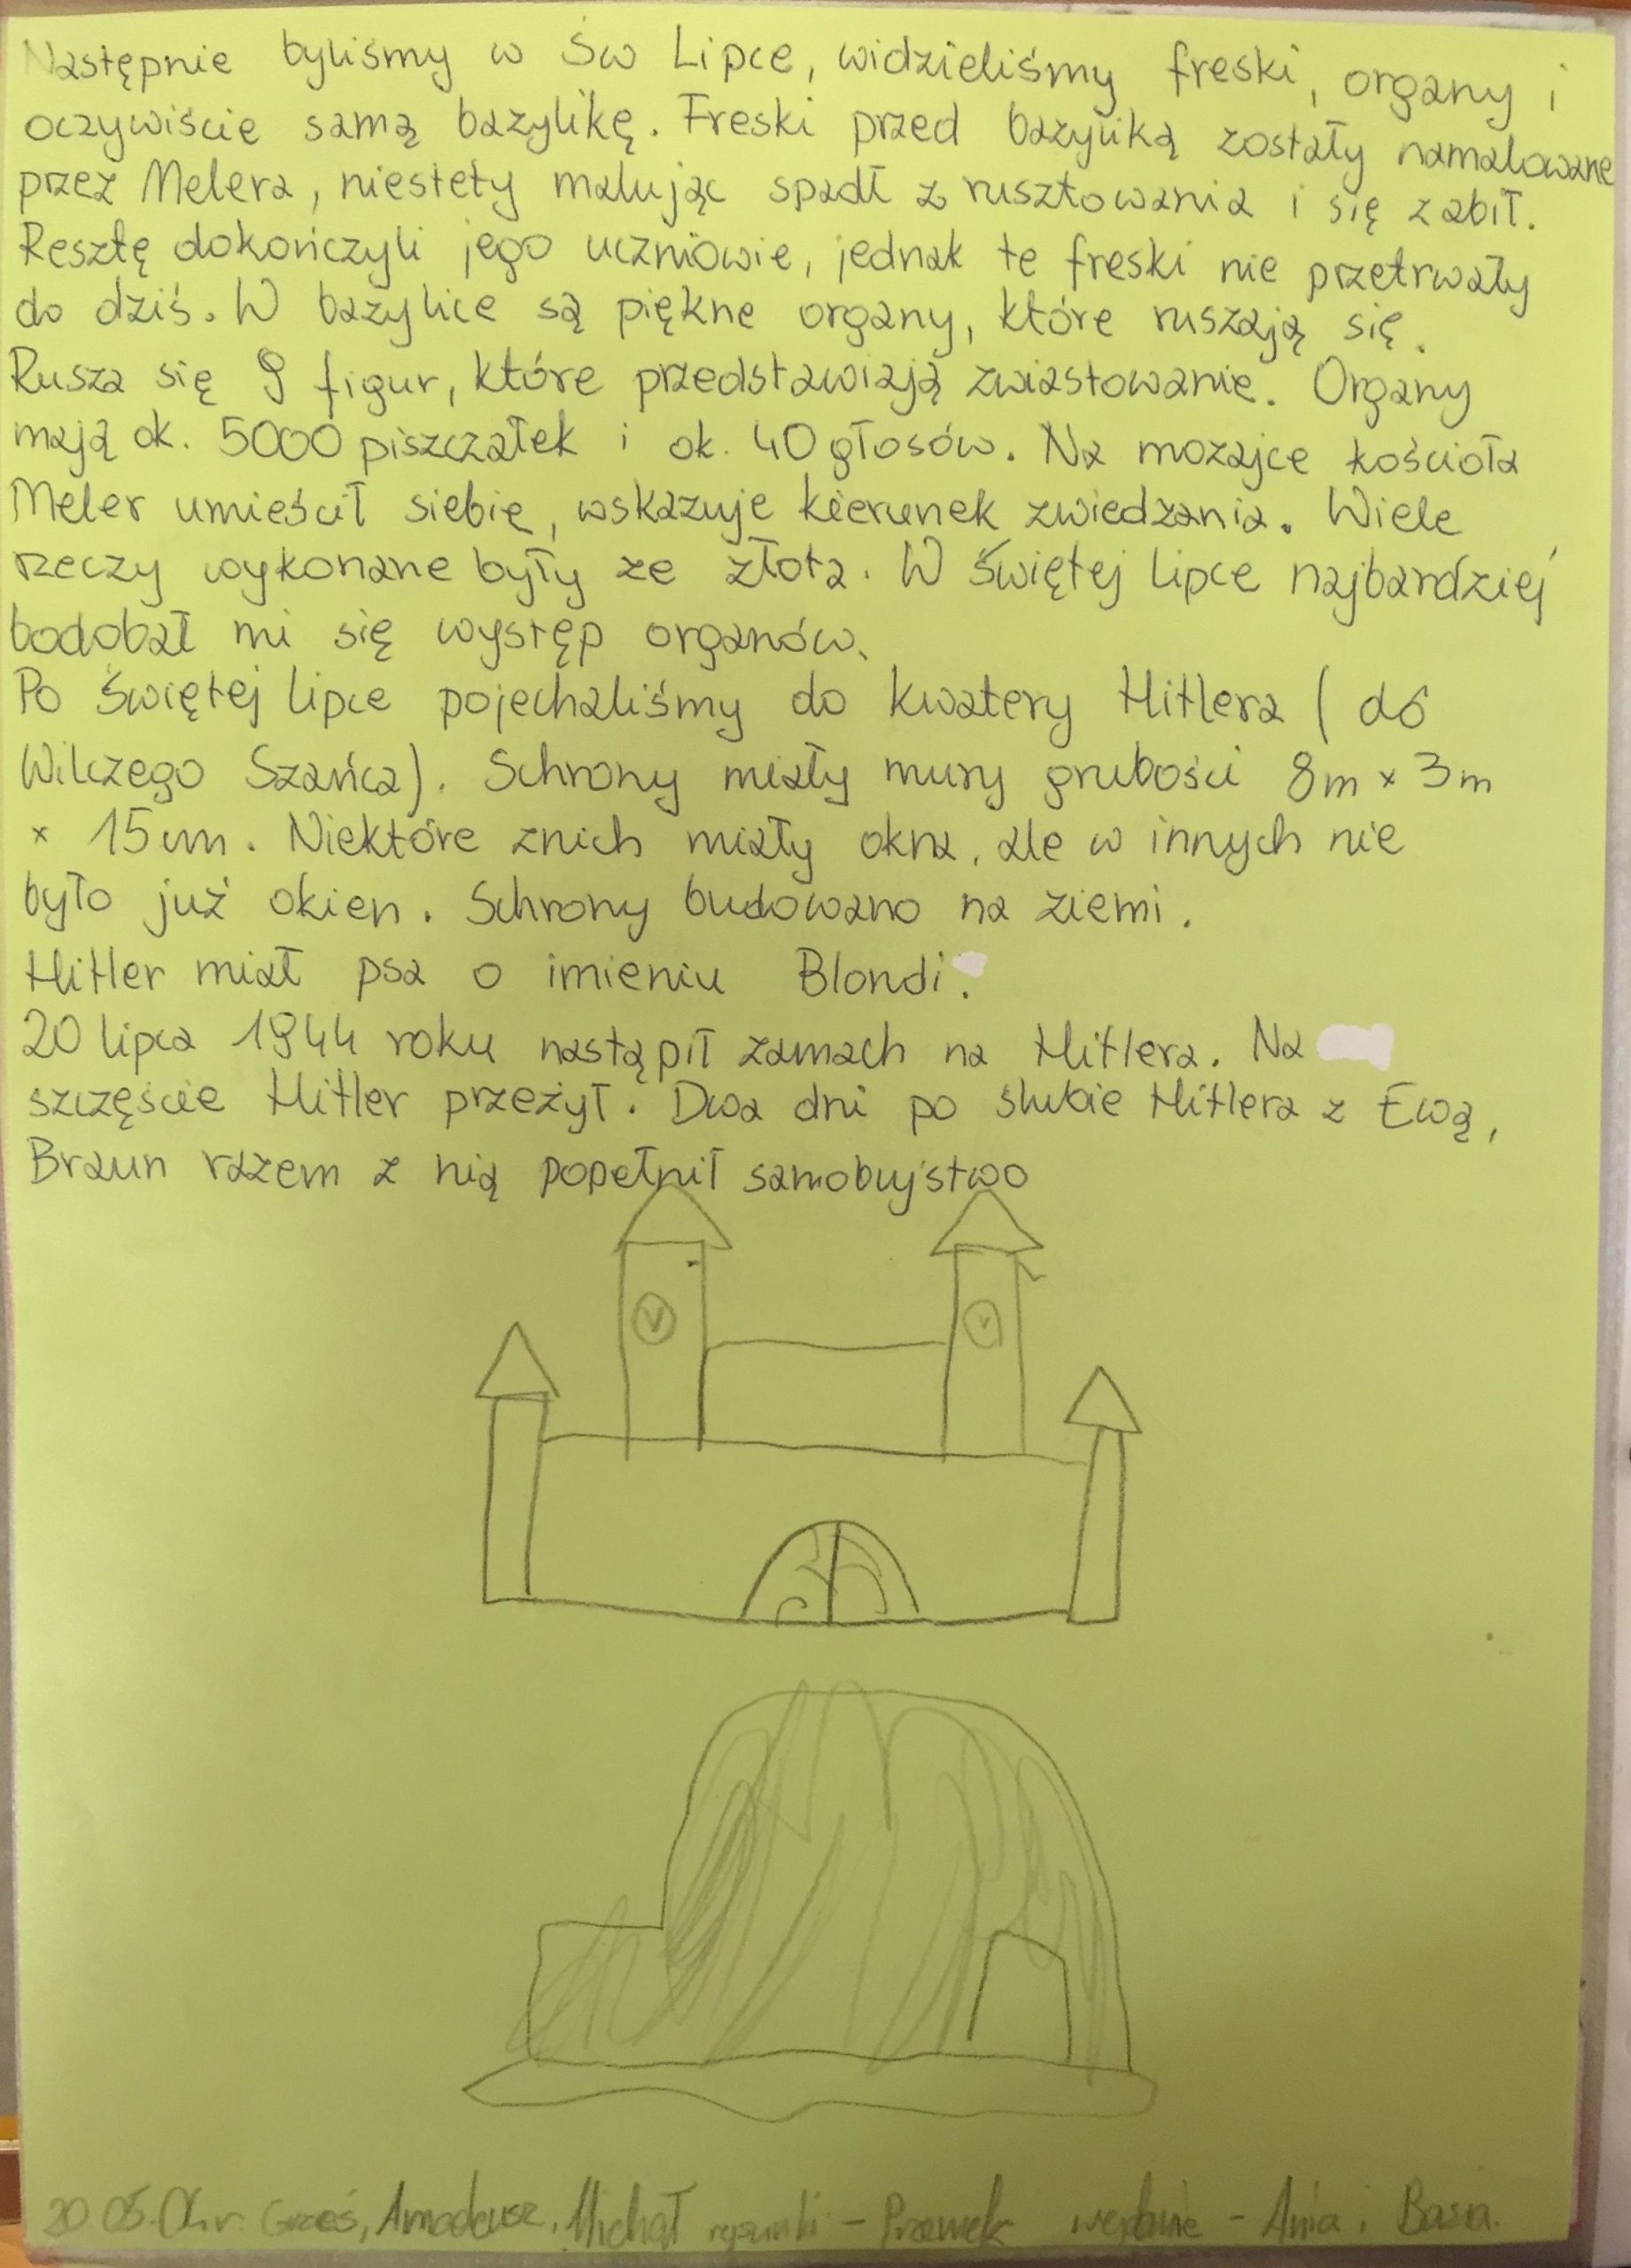 Następnie byliśmy w Św Lipce, widzieliśmy freski, organy i
oczywiście samą bazylikę. Freski przed bazyliką zostały namalowane
przez Melera, niestety malując spadł z rusztowania i się zabił.
Resztę dokończyli jego uczniowie, jednak te freski nie przetrwały
do dziś. W bazylice są piękne organy, które ruszają się.
Rusza się 9 figur, które przedstawiają zwiastowanie. Organy
mają ok. 5000 piszczałek i ok. 40 głosów. Na mozajce kościoła
Meler umieścił siebie, wskazuje kierunek zwiedzania. Wiele
rzeczy wykonane były ze złota. W Świętej Lipce najbardziej
bodobał mi się występ organów.
Po Świętej Lipce pojechaliśmy do kwatery Hitlera ( do
Wilczego Szańca). Schrony miały mury grubości 8m x 3m
x 15cm. Niektóre znich miały okna, ale w innych nie
było już okien. Schrony budowano na ziemi.
Hitler miał psa o imieniu Blondi.
20 lipca 1944 roku nastąpił zamach na Hitlera. Na
szczęście Hitler przeżył. Dwa dni po ślubie Hitlera z Ewą,
Braun razem z nią popełnił samobujstwo
20.05. Grześ, Amadeusz, Michał rysunki - Przemek - Ania i Basia.